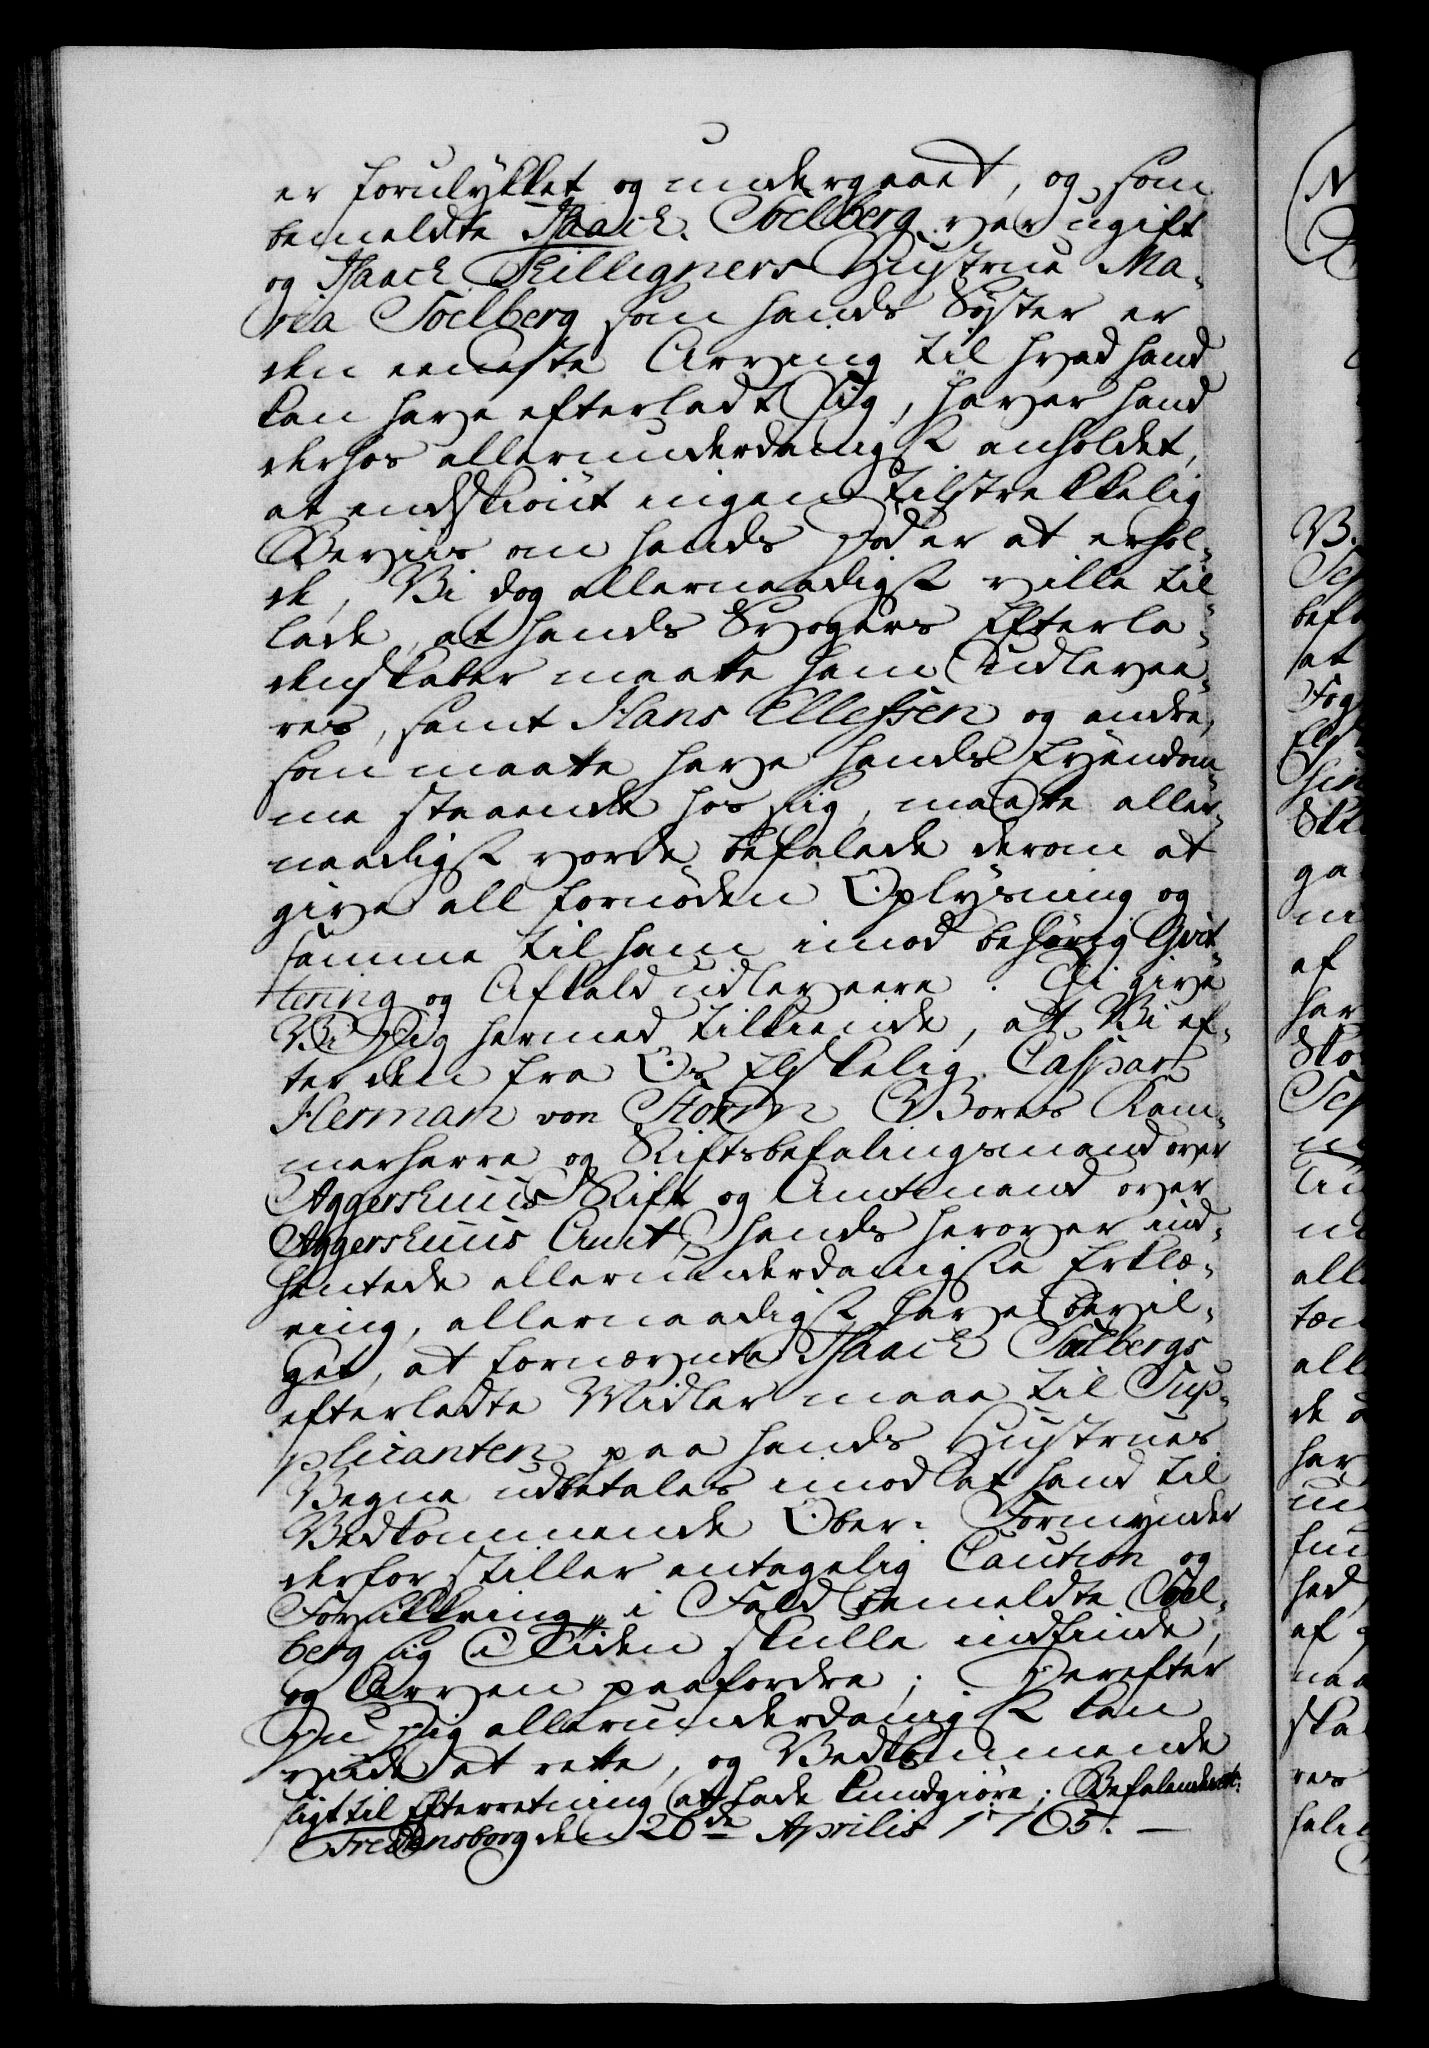 er forulykket og undergaaet, og som
bemeldte Isaach Soelberg var ugift
og Isaach Killigners Hustrue Ma-
ria Soelberg som hands Syster er
den eeneste Arving til hvad hand
kan have efterladt sig, haver hand
derhos allerunderdanigst anholdet,
at endskiönt ingen tilstrekkelig
Beviis om hands Död er at erhol-
de, Vi dog allernaadigst ville til-
lade, at hands Svogers Efterla-
denskaber maatte ham udlevee-
res, samt Hans Ellefsen og andre,
som maatte have hands Eyendom-
me staaende hos sig, maatte aller-
naadigst vorde befalede derom at
give all fornöden Oplysning og
samme til ham imod behörig Qvit-
tering og Afkald udleveere. Thi give
Vi Dig hermed tilkiende, at Vi ef-
ter den fra Os Elskelig Caspar
Herman von Storm Vores Kam-
merherre og Stiftsbefalingsmand over
Aggershuus Stift og Amtmand over
Aggershuus Amt, hands herover ind-
hentede allerunderdanigste Erklæ-
ring, allernaadigst have bevil-
get, at fornævnte Isaach Soelbergs
efterladte Midler maae til Sup-
plicanten paa hands Hustrues
Vegne udbetales imod at hand til
Vedkommende Ober-Formynder
derfor stiller antagelig Caution og
Forsikkring, i Fald bemeldte Soel-
berg sig i Tiden skulle indfinde,
og Arven paafordre; Derefter
Du Dig allerunderdanigst kan
vide at rette, og Vedkommende
sligt til Efterretning at lade kundgiöre; Befalendes etc:
Fredensborg den 26de Aprilis 1765.